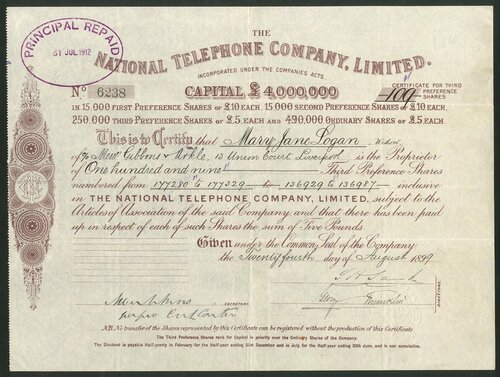 PRINCIPAL REPAID
31 JUL. 1912
THE
NATIONAL TELEPHONE COMPANY, LIMITED.
INCORPORATED UNDER THE COMPANIES ACTS
No 6238
CAPITAL £ 4,000,000
CERTIFICATE FOR
109 THIRD PREFERENCE SHARES
IN 15,000 FIRST PREFERENCE SHARES OF £10 EACH, 15,000 SECOND PREFERENCE SHARES OF £10 EACH,
250,000 THIRD PREFERENCE SHARES OF £5 EACH AND 490,000 ORDINARY SHARES OF £5 EACH
This is to Certify that Mary Jane Logan, Widow
of c/o Messrs Gibbons & Arkle, 13 Union Court Liverpool is the Proprietor
of One hundred and nine Third Preference Shares
numbered from 177280 to 177329 to 136929 to 136987 inclusive
in THE NATIONAL TELEPHONE COMPANY, LIMITED, subject to the
Articles of Association of the said Company, and that there has been paid
up in respect of each of such Shares the sum of Five Pounds.
Given under the Common Seal of the Company
the Twenty fourth day of August 1899
SECRETARY.
DIRECTORS.
N.B. No transfer of the Shares represented by this Certificate can be registered without the production of this Certificate
The Third Preference Shares rank for Capital in priority over the Ordinary Shares of the Company.
The Dividend is payable Half-yearly in February for the Half-year ending 31st December and in July for the Half-year ending 30th June, and is not cumulative.